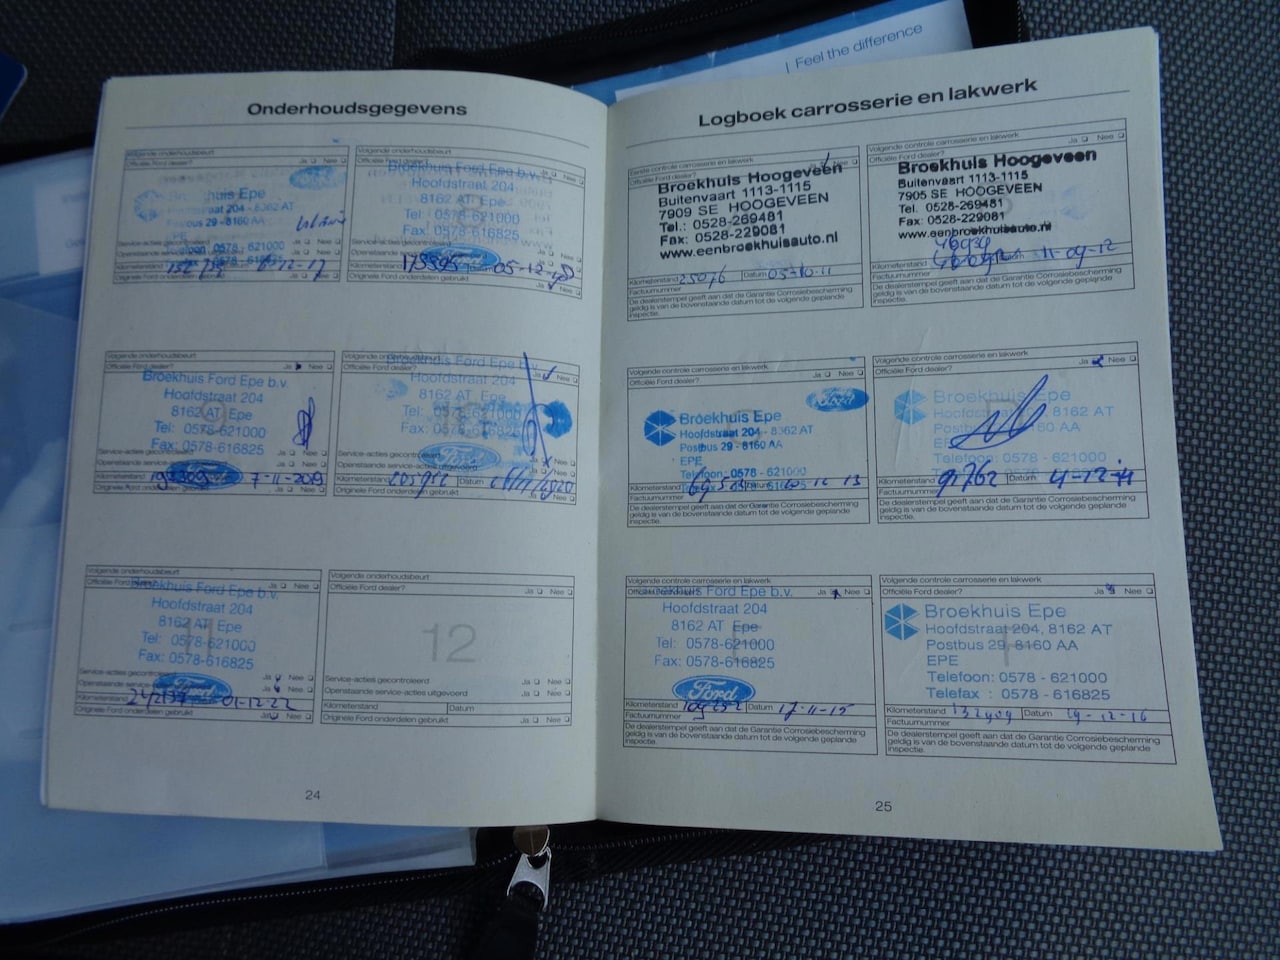 | Feel the difference
Onderhoudsgegevens
Volgende onderhoudsbeurt
Officiële Ford dealer? Ja Nee
Ford
huis Epe
Hoofdstraat 204 - 8162 AT
Postbus 29 - 8160 AA
EPE
Telefoon 0578 - 621000
Service-acties gecontroleerd
Kilometerstand
Originele Ford onderdelen gebruikt
Volgende onderhoudsbeurt
Officiële Ford dealer?
Broekhuis Ford Epe b.v.
Hoofdstraat 204
8162 AT Epe
Tel: 0578-621000
Fax: 0578-616825
Kilometerstand 05-12-18
Originele Ford onderdelen gebruikt Ja Nee
Volgende onderhoudsbeurt
Officiële Ford dealer? Ja Nee
Broekhuis Ford Epe b.v.
Hoofdstraat 204
8162 AT Epe
Tel: 0578-621000
Fax: 0578-616825
Service-acties gecontroleerd
Openstaande service-
Ford
Kilometerstand 7-11-2019
Originele Ford onderdelen gebruikt
Volgende onderhoudsbeurt
Broekhuis Ford Epe b.v.
Ja Nee
Hoofdstraat 204
8162 AT Epe
Tel: 0578-621000
Fax: 0578-616825
Service-acties gecontroleerd
Openstaande service-acties uitgevoerd
Ford
Kilometerstand Datum
Originele Ford onderdelen gebruikt Ja Nee
Volgende onderhoudsbeurt
Officiële Ford dealer? Ja Nee
Broekhuis Ford Epe b.v.
Hoofdstraat 204
8162 AT Epe
11
Tel: 0578-621000
Fax: 0578-616825
Service-acties gecontroleerd Ja Nee
Openstaande service- Ja Nee
Ford
Kilometerstand 242137 01-12-22
Originele Ford onderdelen gebruikt Ja Nee
Volgende onderhoudsbeurt
Officiële Ford dealer? Ja Nee
12
Service-acties gecontroleerd Ja Nee
Openstaande service-acties uitgevoerd Ja Nee
Kilometerstand Datum
Originele Ford onderdelen gebruikt Ja Nee
24
Logboek carrosserie en lakwerk
Eerste controle carrosserie en lakwerk
Officiële Ford dealer? Ja Nee
Broekhuis Hoogeveen
Buitenvaart 1113-1115
7909 SE HOOGEVEEN
Tel.: 0528-269481
Fax: 0528-229081
www.eenbroekhuisauto.nl
Kilometerstand 25076 Datum 05-10-11
Factuurnummer
De dealerstempel geeft aan dat de Garantie Corrosiebescherming
geldig is van de bovenstaande datum tot de volgende geplande
inspectie.
Volgende controle carrosserie en lakwerk
Officiële Ford dealer? Ja Nee
Broekhuis Hoogeveen
Buitenvaart 1113-1115
7905 SE HOOGEVEEN
Tel. 0528-269481
Fax: 0528-229081
www.eenbroekhuisauto.nl
Kilometerstand 11-09-12
Factuurnummer
De dealerstempel geeft aan dat de Garantie Corrosiebescherming
geldig is van de bovenstaande datum tot de volgende geplande
inspectie.
Volgende controle carrosserie en lakwerk
Officiële Ford dealer? Ja Nee
Ford
Broekhuis Epe
Hoofdstraat 204 - 8162 AT
Postbus 29 - 8160 AA
EPE
Telefoon: 0578 - 621000
Kilometerstand Datum
Factuurnummer
De dealerstempel geeft aan dat de Garantie Corrosiebescherming
geldig is van de bovenstaande datum tot de volgende geplande
inspectie.
Volgende controle carrosserie en lakwerk
Officiële Ford dealer? Ja Nee
Broekhuis Epe
8162 AT
Postbus 60 AA
EPE
Telefoon: 0578 - 621000
Kilometerstand 91762
Factuurnummer
De dealerstempel geeft aan dat de Garantie Corrosiebescherming
geldig is van de bovenstaande datum tot de volgende geplande
inspectie.
Volgende controle carrosserie en lakwerk
Officiële Ford dealer? Ja Nee
Broekhuis Ford Epe b.v.
Hoofdstraat 204
8162 AT Epe
Tel: 0578-621000
Fax: 0578-616825
Ford
Kilometerstand 109252 Datum 17-11-15
Factuurnummer
De dealerstempel geeft aan dat de Garantie Corrosiebescherming
geldig is van de bovenstaande datum tot de volgende geplande
inspectie.
Volgende controle carrosserie en lakwerk
Officiële Ford dealer? Ja Nee
Broekhuis Epe
Hoofdstraat 204, 8162 AT
Postbus 29, 8160 AA
EPE
Telefoon: 0578 - 621000
Telefax : 0578 - 616825
Kilometerstand 132909 Datum 19-12-16
Factuurnummer
De dealerstempel geeft aan dat de Garantie Corrosiebescherming
geldig is van de bovenstaande datum tot de volgende geplande
inspectie.
25